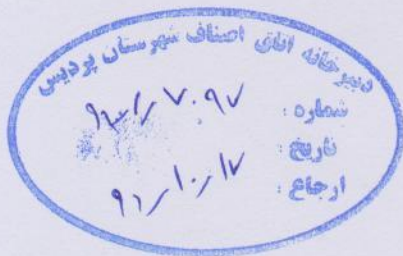 دبیرخانه اتاق اصناف شهرستان پردیس
شماره :
تاریخ :
ارجاع :
۹۱/۱۰/۱۷